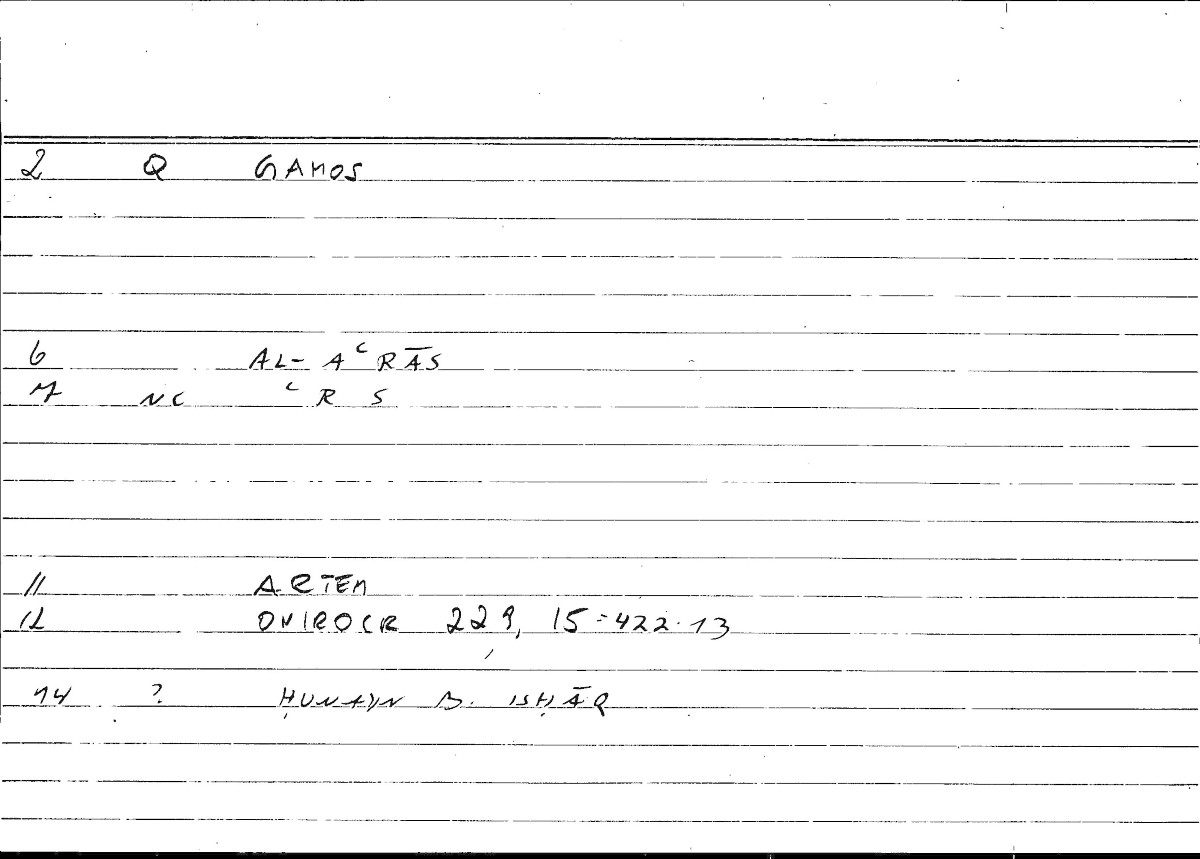 2 Q GAMOS
6 AL- AʿRĀS
7 NC ʿ R S
11 ARTEM
12 ONIROCR 229, 15 = 422.13
14 ? ḤUNAYN B. ISḤĀQ